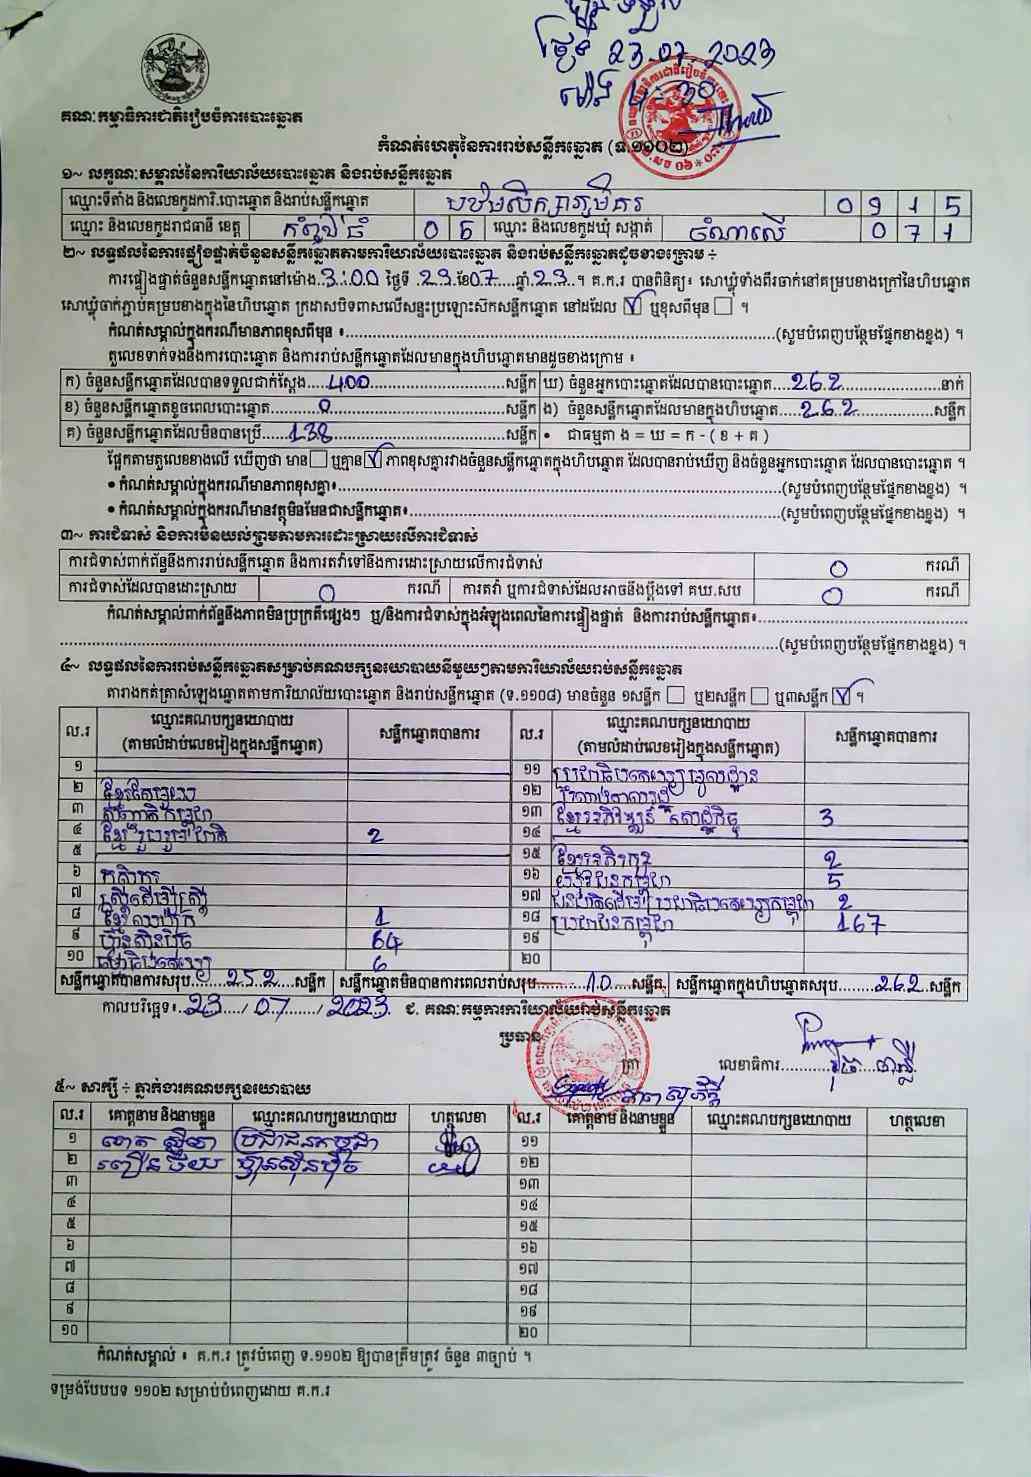 ថ្ងៃទី 23.07.2023
គណៈកម្មាធិការជាតិរៀបចំការបោះឆ្នោត
កំណត់ហេតុនៃការរាប់សន្លឹកឆ្នោត (ទ.១១០២)
១~ លក្ខណៈសម្គាល់នៃការិយាល័យបោះឆ្នោត និងរាប់សន្លឹកឆ្នោត
ឈ្មោះទីតាំង និងលេខកូដការិ.បោះឆ្នោត និងរាប់សន្លឹកឆ្នោត 0 9 1 5
ឈ្មោះ និងលេខកូដរាជធានី ខេត្ត កំពង់ធំ 0 6 ឈ្មោះ និងលេខកូដឃុំ សង្កាត់ ចំណាលើ 0 7 1
២~ លទ្ធផលនៃការផ្ទៀងផ្ទាត់ចំនួនសន្លឹកឆ្នោតតាមការិយាល័យបោះឆ្នោត និងរាប់សន្លឹកឆ្នោតដូចខាងក្រោម ៖
ការផ្ទៀងផ្ទាត់ចំនួនសន្លឹកឆ្នោតនៅម៉ោង 3:00 ថ្ងៃទី 23 ខែ 07 ឆ្នាំ 23 ។ គ.ក.រ បានពិនិត្យ៖ សោឃ្លុំទាំងពីរចាក់នៅគម្របខាងក្រៅនៃហិបឆ្នោត
សោឃ្លុំចាក់ភ្ជាប់គម្របខាងក្នុងនៃហិបឆ្នោត ក្រដាសបិទពាសលើសន្ទះប្រឡោះស៊កសន្លឹកឆ្នោត នៅដដែល ☑ ឬខុសពីមុន ☐ ។
កំណត់សម្គាល់ក្នុងករណីមានភាពខុសពីមុន ៖ (សូមបំពេញបន្ថែមផ្នែកខាងខ្នង) ។
តួលេខទាក់ទងនឹងការបោះឆ្នោត និងការរាប់សន្លឹកឆ្នោតដែលមានក្នុងហិបឆ្នោតមានដូចខាងក្រោម ៖
ក) ចំនួនសន្លឹកឆ្នោតដែលបានទទួលជាក់ស្តែង 400 សន្លឹក ឃ) ចំនួនអ្នកបោះឆ្នោតដែលបានបោះឆ្នោត 262 នាក់
ខ) ចំនួនសន្លឹកឆ្នោតខូចពេលបោះឆ្នោត 0 សន្លឹក ង) ចំនួនសន្លឹកឆ្នោតដែលមានក្នុងហិបឆ្នោត 262 សន្លឹក
គ) ចំនួនសន្លឹកឆ្នោតដែលមិនបានប្រើ 138 សន្លឹក • ជាធម្មតា ង = ឃ = ក - ( ខ + គ )
ផ្អែកតាមតួលេខខាងលើ ឃើញថា មាន ☐ ឬគ្មាន ☑ ភាពខុសគ្នារវាងចំនួនសន្លឹកឆ្នោតក្នុងហិបឆ្នោត ដែលបានរាប់ឃើញ និងចំនួនអ្នកបោះឆ្នោត ដែលបានបោះឆ្នោត ។
• កំណត់សម្គាល់ក្នុងករណីមានភាពខុសគ្នា៖ (សូមបំពេញបន្ថែមផ្នែកខាងខ្នង) ។
• កំណត់សម្គាល់ក្នុងករណីមានវត្ថុមិនមែនជាសន្លឹកឆ្នោត៖ (សូមបំពេញបន្ថែមផ្នែកខាងខ្នង) ។
៣~ ការជំទាស់ និងការមិនយល់ព្រមតាមការដោះស្រាយលើការជំទាស់
ការជំទាស់ពាក់ព័ន្ធនឹងការរាប់សន្លឹកឆ្នោត និងការតវ៉ាទៅនឹងការដោះស្រាយលើការជំទាស់ 0 ករណី
ការជំទាស់ដែលបានដោះស្រាយ 0 ករណី ការតវ៉ា ឬការជំទាស់ដែលអាចនឹងប្តឹងទៅ គឃ.សប 0 ករណី
កំណត់សម្គាល់ពាក់ព័ន្ធនឹងភាពមិនប្រក្រតីផ្សេងៗ ឬ/និងការជំទាស់ក្នុងអំឡុងពេលនៃការផ្ទៀងផ្ទាត់ និងការរាប់សន្លឹកឆ្នោត៖
(សូមបំពេញបន្ថែមផ្នែកខាងខ្នង) ។
៤~ លទ្ធផលនៃការរាប់សន្លឹកឆ្នោតសម្រាប់គណបក្សនយោបាយនីមួយៗតាមការិយាល័យរាប់សន្លឹកឆ្នោត
តារាងកត់ត្រាសំឡេងឆ្នោតតាមការិយាល័យបោះឆ្នោត និងរាប់សន្លឹកឆ្នោត (ទ.១១០៨) មានចំនួន ១សន្លឹក ☐ ឬ២សន្លឹក ☐ ឬ៣សន្លឹក ☑ ។
ល.រ ឈ្មោះគណបក្សនយោបាយ (តាមលំដាប់លេខរៀងក្នុងសន្លឹកឆ្នោត) សន្លឹកឆ្នោតបានការ ល.រ ឈ្មោះគណបក្សនយោបាយ (តាមលំដាប់លេខរៀងក្នុងសន្លឹកឆ្នោត) សន្លឹកឆ្នោតបានការ
១ ១១ ប្រជាធិបតេយ្យមូលដ្ឋាន
២ ខ្មែរតែមួយ ១២
៣ សញ្ជាតិកម្ពុជា ១៣ ខ្មែរអភិវឌ្ឍន៍សេដ្ឋកិច្ច 3
៤ ខ្មែររួបរួមជាតិ 2 ១៤
៥ ១៥ ខ្មែរអភិរក្ស 2
៦ កសិករ ១៦ យុវជនកម្ពុជា 5
៧ ស្ត្រីដើម្បីស្ត្រី ១៧ ជនជាតិដើមប្រជាធិបតេយ្យកម្ពុជា 2
៨ ខ្មែរឈប់ក្រ 1 ១៨ ប្រជាជនកម្ពុជា 167
៩ ហ្វ៊ុនស៊ិនប៉ិច 64 ១៩
១០ ធម្មាធិបតេយ្យ 6 ២០
សន្លឹកឆ្នោតបានការសរុប 252 សន្លឹក សន្លឹកឆ្នោតមិនបានការពេលរាប់សរុប 10 សន្លឹក សន្លឹកឆ្នោតក្នុងហិបឆ្នោតសរុប 262 សន្លឹក
កាលបរិច្ឆេទ៖ 23 / 07 / 2023 ជ. គណៈកម្មការការិយាល័យរាប់សន្លឹកឆ្នោត
ប្រធាន
ត្រា លេខាធិការ
៥~ សាក្សី ÷ ភ្នាក់ងារគណបក្សនយោបាយ
ល.រ គោត្តនាម និងនាមខ្លួន ឈ្មោះគណបក្សនយោបាយ ហត្ថលេខា ល.រ គោត្តនាម និងនាមខ្លួន ឈ្មោះគណបក្សនយោបាយ ហត្ថលេខា
១ ប្រជាជនកម្ពុជា ១១
២ ហ្វ៊ុនស៊ិនប៉ិច ១២
៣ ១៣
៤ ១៤
៥ ១៥
៦ ១៦
៧ ១៧
៨ ១៨
៩ ១៩
១០ ២០
កំណត់សម្គាល់ ៖ គ.ក.រ ត្រូវបំពេញ ទ.១១០២ ឱ្យបានត្រឹមត្រូវ ចំនួន ៣ច្បាប់ ។
ទម្រង់បែបបទ ១១០២ សម្រាប់បំពេញដោយ គ.ក.រ